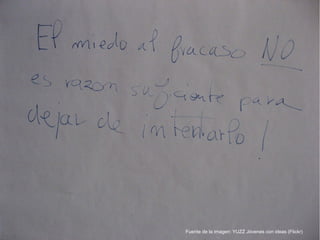 El miedo al fracaso NO
es razon suficiente para
dejar de intentarlo!
Fuente de la imagen: YUZZ Jóvenes con ideas (Flickr)